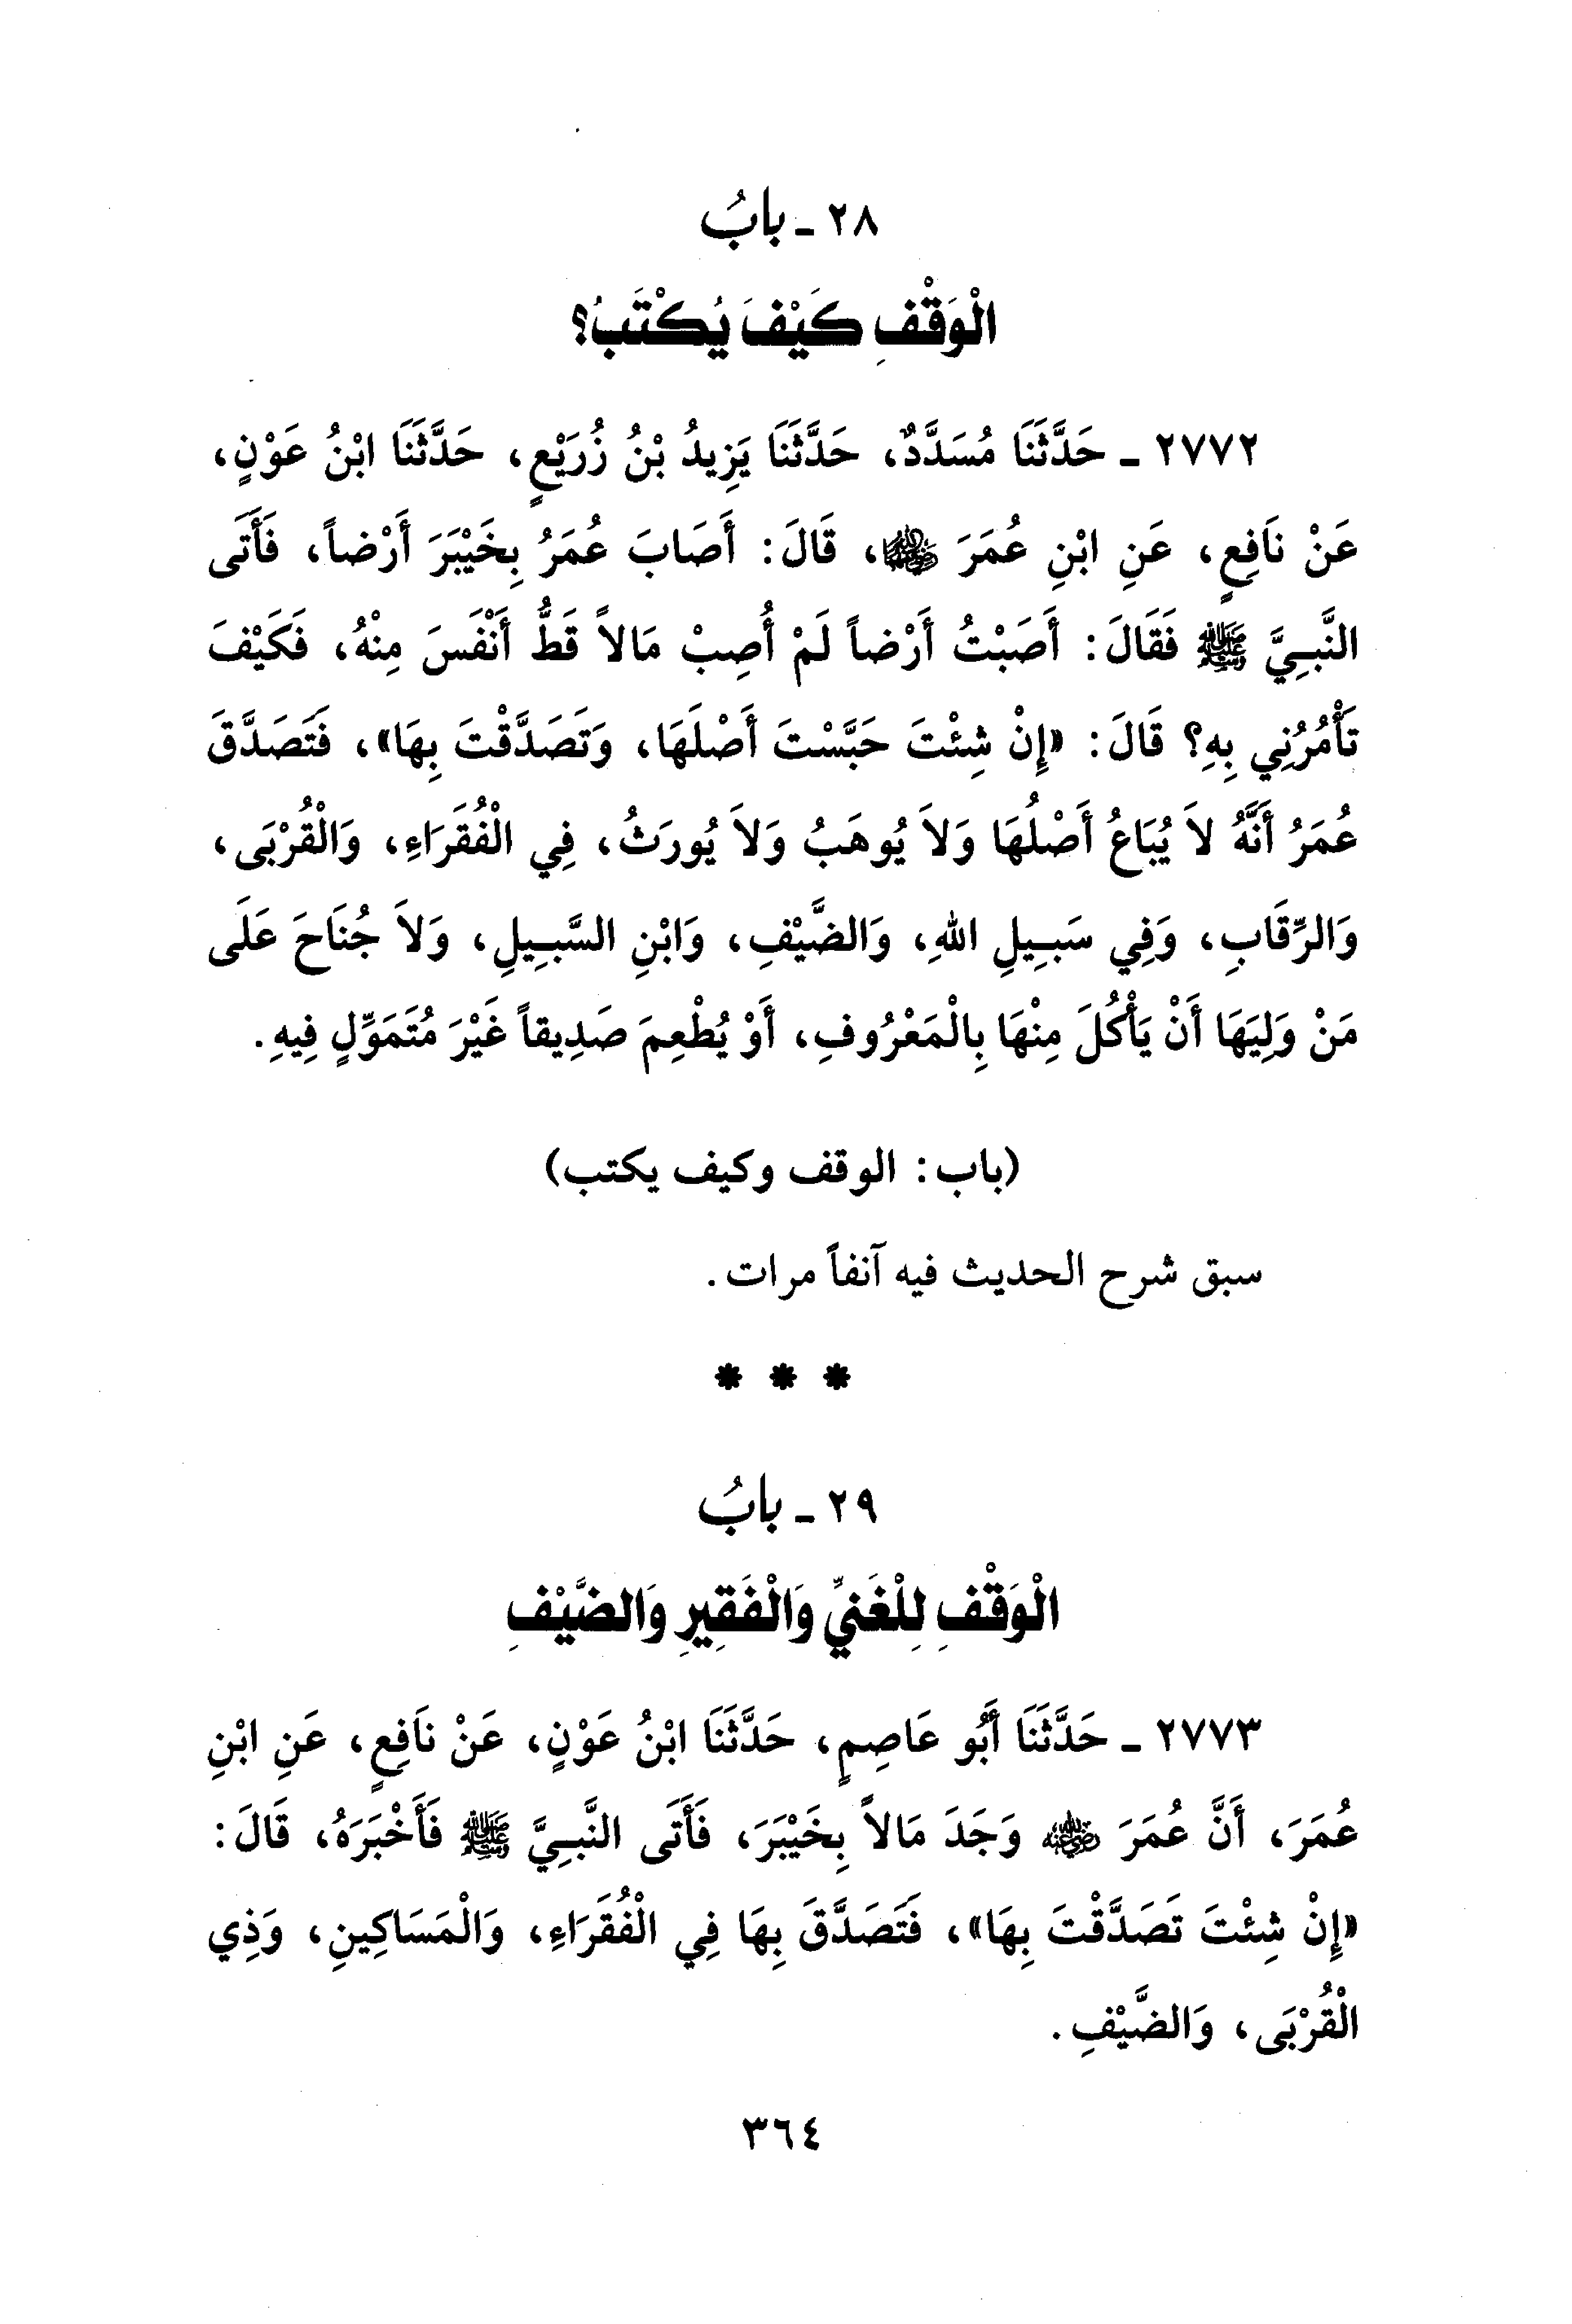 ٢٨ - بابُ
الْوَقْفِ كَيْفَ يُكْتَبُ؟
٢٧٧٢ - حَدَّثَنَا مُسَدَّدٌ، حَدَّثَنَا يَزِيدُ بْنُ زُرَيْعٍ، حَدَّثَنَا ابْنُ عَوْنٍ،
عَنْ نَافِعٍ، عَنِ ابْنِ عُمَرَ ﵄، قَالَ: أَصَابَ عُمَرُ بِخَيْبَرَ أَرْضاً، فَأَتَى
النَّبِيَّ ﷺ فَقَالَ: أَصَبْتُ أَرْضاً لَمْ أُصِبْ مَالاً قَطُّ أَنْفَسَ مِنْهُ، فَكَيْفَ
تَأْمُرُنِي بِهِ؟ قَالَ: «إِنْ شِئْتَ حَبَّسْتَ أَصْلَهَا، وَتَصَدَّقْتَ بِهَا»، فَتَصَدَّقَ
عُمَرُ أَنَّهُ لاَ يُبَاعُ أَصْلُهَا وَلاَ يُوهَبُ وَلاَ يُورَثُ، فِي الْفُقَرَاءِ، وَالْقُرْبَى،
وَالرِّقَابِ، وَفِي سَبِيلِ اللهِ، وَالضَّيْفِ، وَابْنِ السَّبِيلِ، وَلاَ جُنَاحَ عَلَى
مَنْ وَلِيَهَا أَنْ يَأْكُلَ مِنْهَا بِالْمَعْرُوفِ، أَوْ يُطْعِمَ صَدِيقاً غَيْرَ مُتَمَوِّلٍ فِيهِ.
(باب: الوقف وكيف يكتب)
سبق شرح الحديث فيه آنفاً مرات.
* * *
٢٩ - بابُ
الْوَقْفِ لِلْغَنِيِّ وَالْفَقِيرِ وَالضَّيْفِ
٢٧٧٣ - حَدَّثَنَا أَبُو عَاصِمٍ، حَدَّثَنَا ابْنُ عَوْنٍ، عَنْ نَافِعٍ، عَنِ ابْنِ
عُمَرَ، أَنَّ عُمَرَ ﵁ وَجَدَ مَالاً بِخَيْبَرَ، فَأَتَى النَّبِيَّ ﷺ فَأَخْبَرَهُ، قَالَ:
«إِنْ شِئْتَ تَصَدَّقْتَ بِهَا»، فَتَصَدَّقَ بِهَا فِي الْفُقَرَاءِ، وَالْمَسَاكِينِ، وَذِي
الْقُرْبَى، وَالضَّيْفِ.
٣٦٤